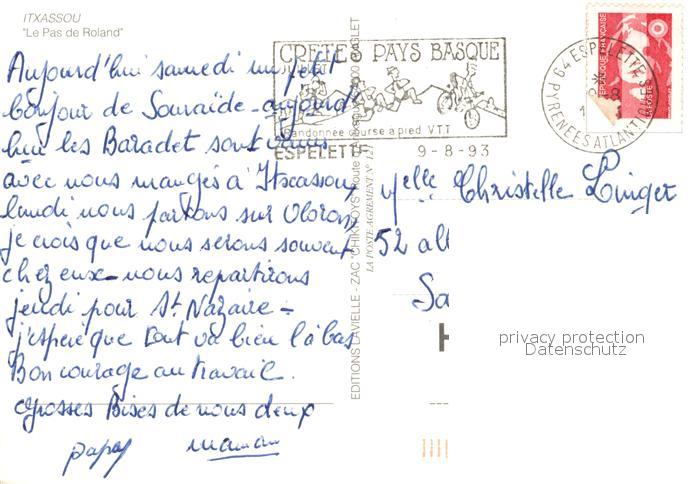 ITXASSOU
"Le Pas de Roland"
Aujourd'hui samedi un petit
bonjour de Souraïde - aujourd'
hui les Baradet sont venus
avec nous manger à Itxassou,
lundi nous partons sur Oloron,
je crois que nous serons souvent
chez eux - nous repartirons
jeudi pour St. Nazaire -
j'espère que tout va bien là bas
Bon courage au travail.
Grosses Bises de nous deux
papa maman
EDITIONS LAVIELLE - ZAC "CHIKI"
LA POSTE AGREMENT N° 121
CRETES PAYS BASQUE
Randonnée course a pied VTT
ESPELETTE 9-8-93
64 ESPELETTE
PYRENEES ATLANTIQUES
REPUBLIQUE FRANÇAISE
LA POSTE
Melle Christelle Linget
52 all
Sa
privacy protection
Datenschutz